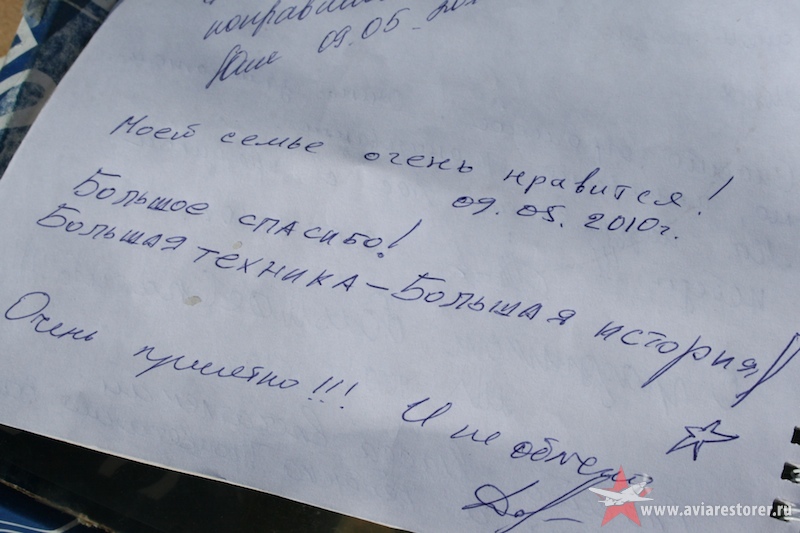 09.05.
Моей семье очень нравится!
09.05.2010г.
Большое спасибо!
Большая техника – Большая история!
Очень приятно!!! И не
www.aviarestorer.ru